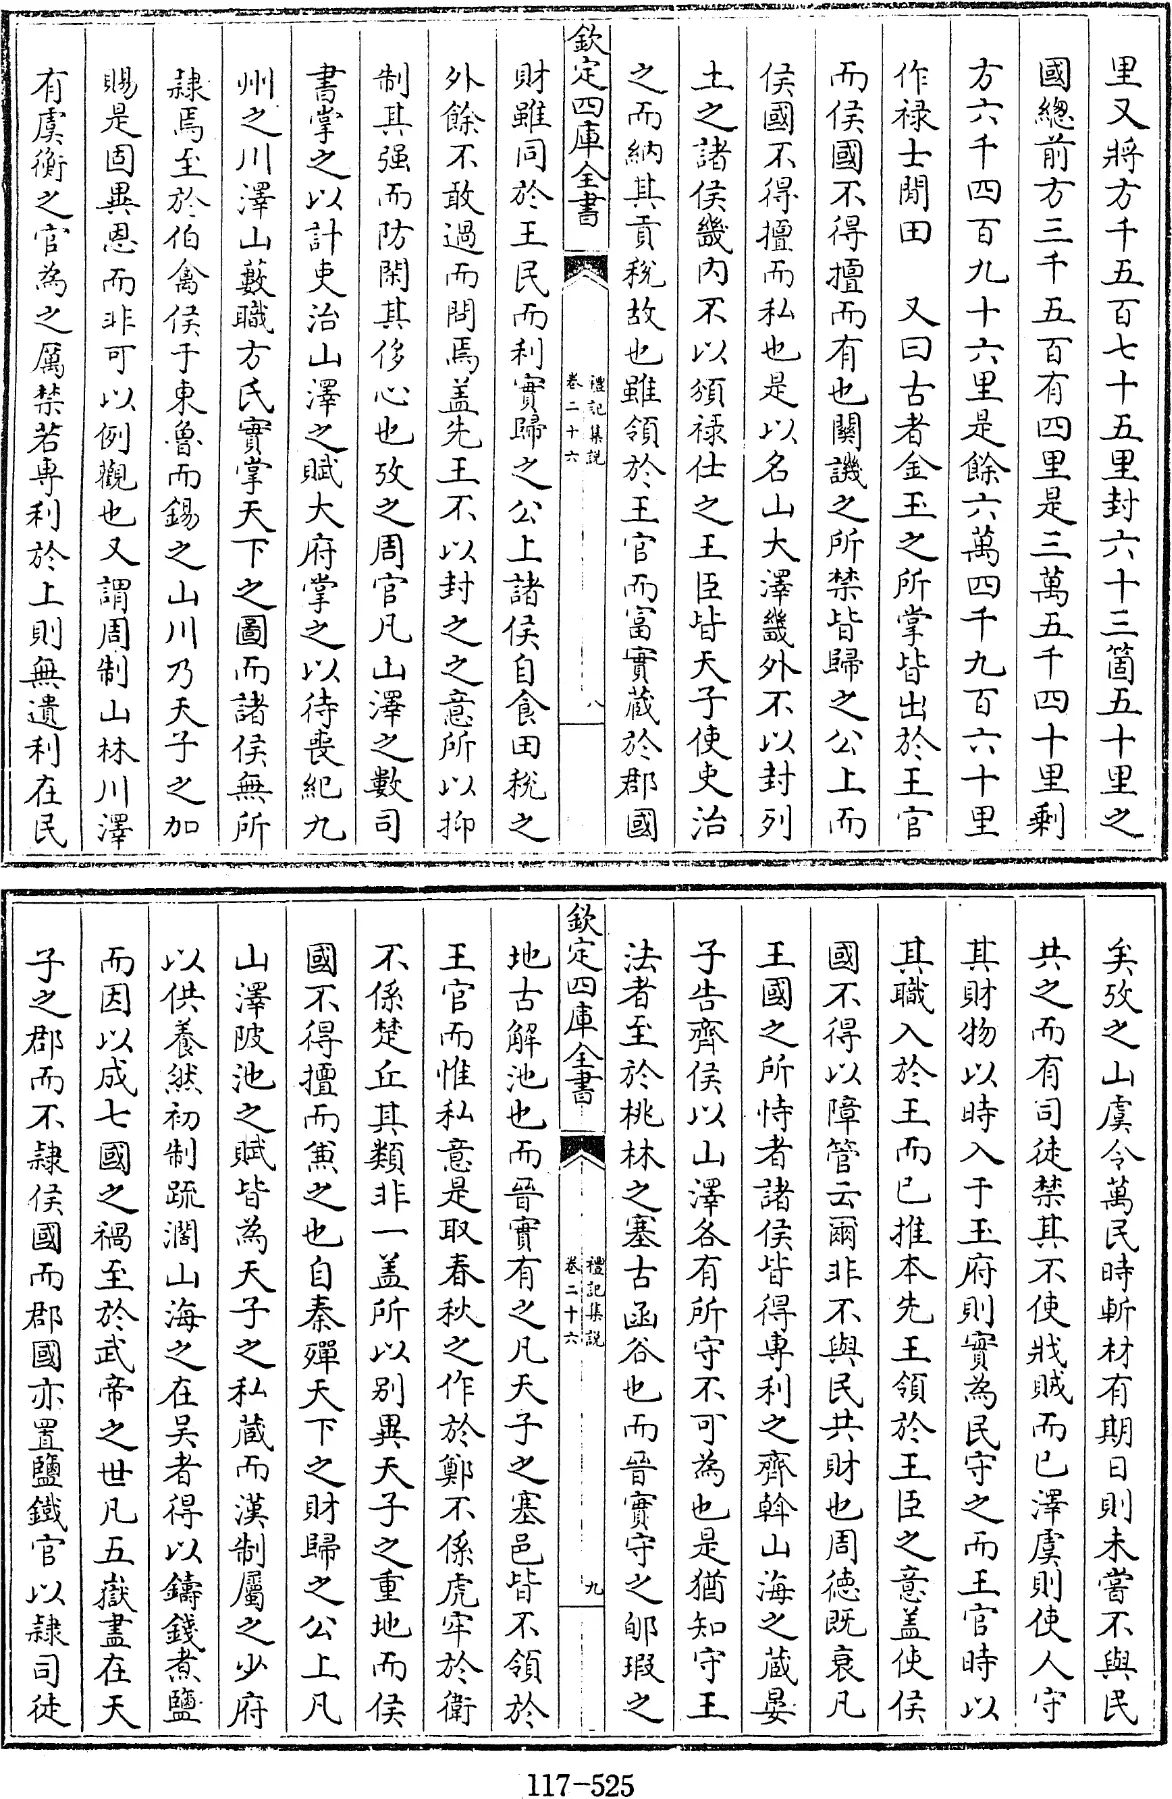 里又將方千五百七十五里封六十三箇五十里之
國總前方三千五百有四里是三萬五千四十里剩
方六千四百九十六里是餘六萬四千九百六十里
作禄士閒田　又曰古者金玉之所掌皆出於王官
而侯國不得擅而有也關譏之所禁皆歸之公上而
侯國不得擅而私也是以名山大澤畿外不以封列
土之諸侯畿内不以頒禄仕之王臣皆天子使吏治
之而納其貢稅故也雖領於王官而富實蔵於郡國
欽定四庫全書
禮記集説
卷二十六
八
財雖同於王民而利實歸之公上諸侯自食田稅之
外餘不敢過而問焉盖先王不以封之之意所以抑
制其强而防閑其侈心也攷之周官凡山澤之數司
書掌之以計吏治山澤之賦大府掌之以待喪紀九
州之川澤山藪職方氏實掌天下之圖而諸侯無所
隷焉至於伯禽侯于東魯而錫之山川乃天子之加
賜是固異恩而非可以例觀也又謂周制山林川澤
有虞衡之官為之厲禁若專利於上則無遺利在民
矣攷之山虞令萬民時斬材有期日則未嘗不與民
共之而有司徒禁其不使戕賊而已澤虞則使人守
其財物以時入于玉府則實為民守之而王官時以
其職入於王而已推本先王領於王臣之意盖使侯
國不得以障管云爾非不與民共財也周德既衰凡
王國之所恃者諸侯皆得專利之齊斡山海之蔵晏
子告齊侯以山澤各有所守不可為也是猶知守王
法者至於桃林之塞古函谷也而晉實守之郇瑕之
欽定四庫全書
禮記集説
卷二十六
九
地古解池也而晉實有之凡天子之塞邑皆不領於
王官而惟私意是取春秋之作於鄭不係虎牢於衛
不係楚丘其類非一盖所以别異天子之重地而侯
國不得擅而兼之也自秦殫天下之財歸之公上凡
山澤陂池之賦皆為天子之私蔵而漢制屬之少府
以供養然初制疏濶山海之在吴者得以鑄錢煮鹽
而因以成七國之禍至於武帝之世凡五嶽盡在天
子之郡而不隷侯國而郡國亦置鹽鐵官以隷司徒
117-525